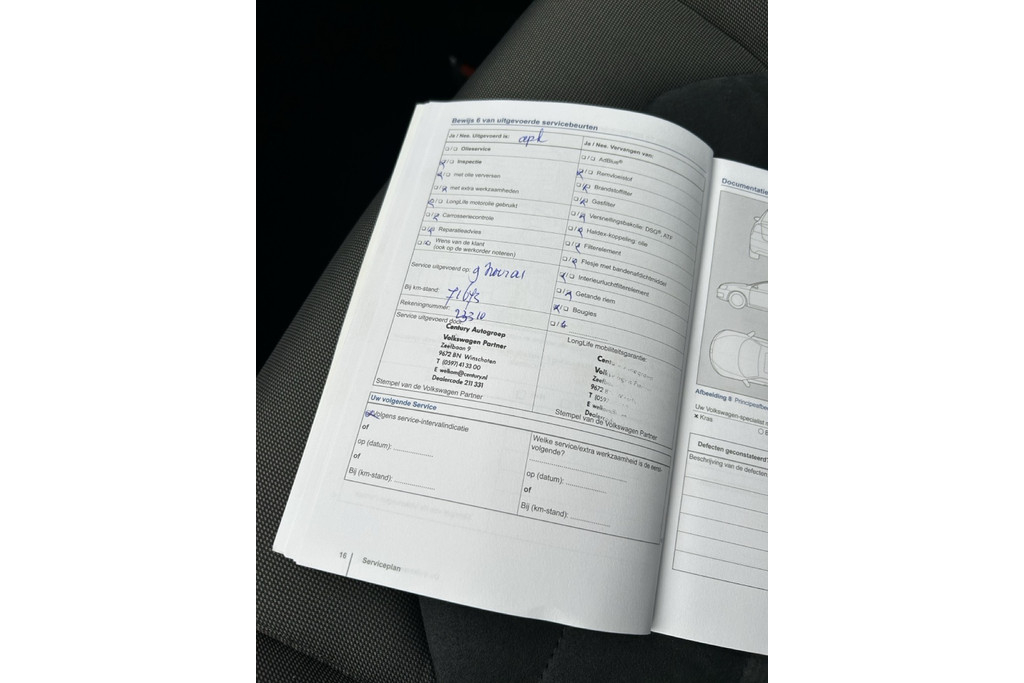 Bewijs 6 van uitgevoerde servicebeurten
Ja / Nee. Uitgevoerd is: apk
❑/❑ Olieservice
❑/❑ Inspectie
❑/❑ met olie verversen
❑/❑ met extra werkzaamheden
❑/❑ LongLife motorolie gebruikt
❑/❑ Carrosseriecontrole
❑/❑ Reparatieadvies
❑/❑ Wens van de klant
(ook op de werkorder noteren)
Service uitgevoerd op:
Bij km-stand:
Rekeningnummer: 23310
Service uitgevoerd door:
Century Autogroep
Volkswagen Partner
Zeelbaan 9
9672 BN Winschoten
T (0597) 41 33 00
E welkom@century.nl
Dealercode 211 331
Stempel van de Volkswagen Partner
Ja / Nee. Vervangen van:
❑/❑ AdBlue®
❑/❑ Remvloeistof
❑/❑ Brandstoffilter
❑/❑ Gasfilter
❑/❑ Versnellingsbakolie: DSG®, ATF
❑/❑ Haldex-koppeling: olie
❑/❑ Filterelement
❑/❑ Flesje met bandenafdichtmiddel
❑/❑ Interieurluchtfilterelement
❑/❑ Getande riem
❑/❑ Bougies
❑/❑
LongLife mobiliteitsgarantie:
Stempel van de Volkswagen Partner
Uw volgende Service
Volgens service-intervalindicatie
of
op (datum): ...............
of
Bij (km-stand): ...............
Welke service/extra werkzaamheid is de eerst-
volgende?
op (datum): ...............
of
Bij (km-stand): ...............
16 Serviceplan
Documentatie
Afbeelding 8
Uw Volkswagen-specialist
x Kras
Defecten geconstateerd?
Beschrijving van de defecten